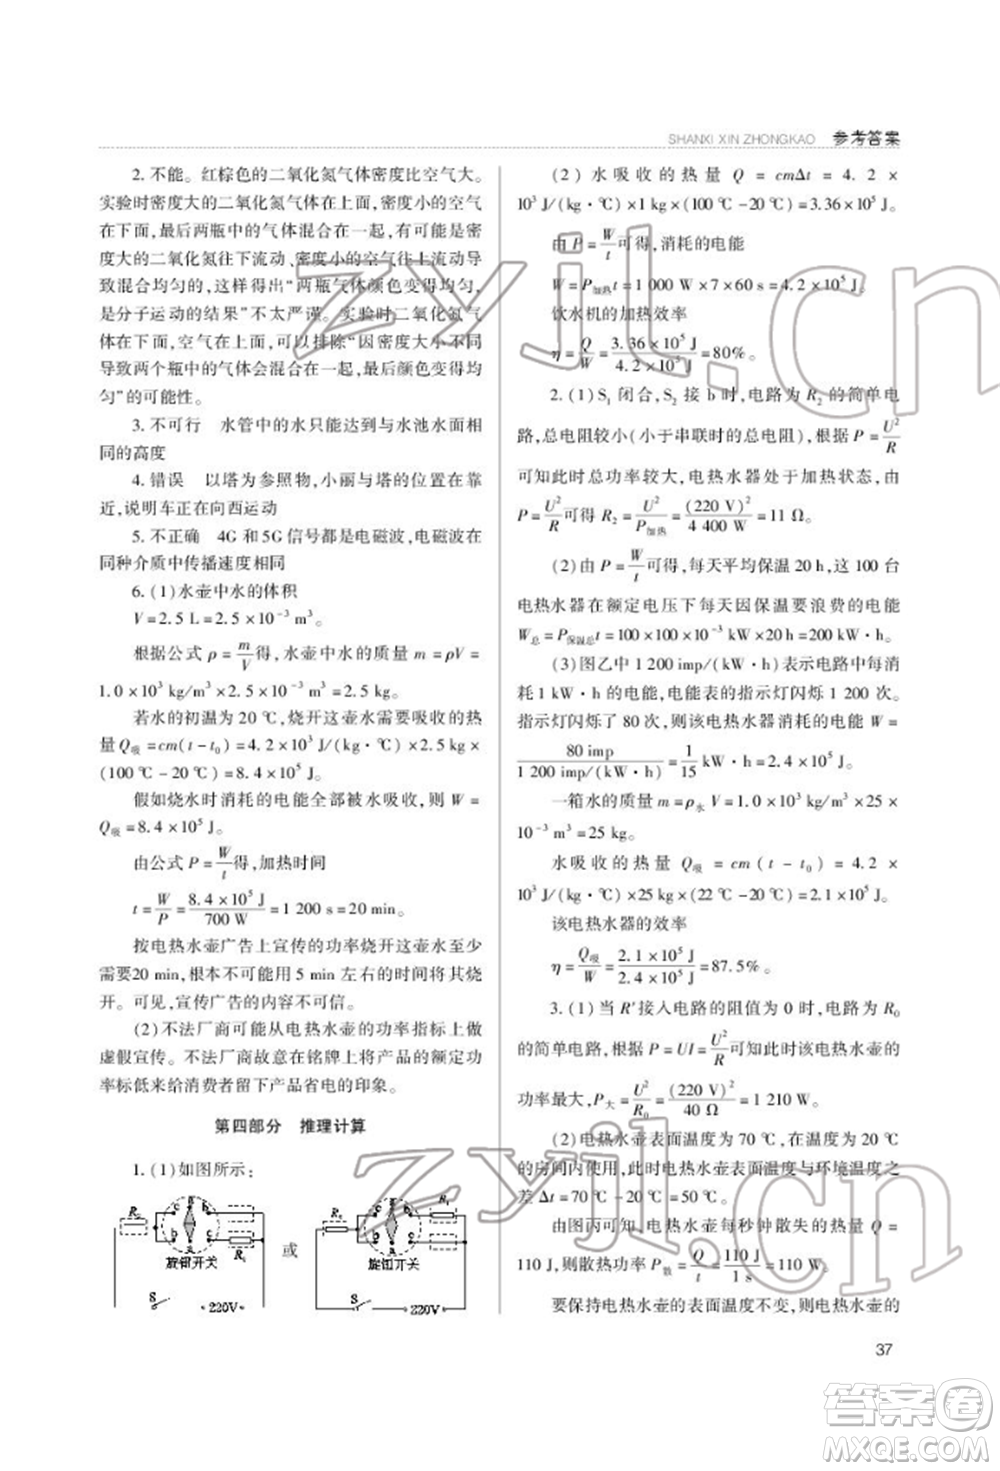 SHANXI XIN ZHONGKAO 参考答案
2. 不能。红棕色的二氧化氮气体密度比空气大。
实验时密度大的二氧化氮气体在上面,密度小的空气
在下面,最后两瓶中的气体混合在一起,有可能是密
度大的二氧化氮往下流动、密度小的空气往上流动导
致混合均匀的,这样得出“两瓶气体颜色变得均匀,
是分子运动的结果”不太严谨。实验时二氧化氮气
体在下面,空气在上面,可以排除“因密度大小不同
导致两个瓶中的气体会混合在一起,最后颜色变得均
匀”的可能性。
3. 不可行 水管中的水只能达到与水池水面相
同的高度
4. 错误 以塔为参照物,小丽与塔的位置在靠
近,说明车正在向西运动
5. 不正确 4G 和 5G 信号都是电磁波,电磁波在
同种介质中传播速度相同
6. (1)水壶中水的体积
V = 2.5 L = 2.5 × 10⁻³ m³。
根据公式 ρ = m/V 得,水壶中水的质量 m = ρV =
1.0 × 10³ kg/m³ × 2.5 × 10⁻³ m³ = 2.5 kg。
若水的初温为 20 ℃,烧开这壶水需要吸收的热
量 Q吸 = cm(t - t₀) = 4.2 × 10³ J/(kg · ℃) × 2.5 kg ×
(100 ℃ - 20 ℃) = 8.4 × 10⁵ J。
假如烧水时消耗的电能全部被水吸收,则 W =
Q吸 = 8.4 × 10⁵ J。
由公式 P = W/t 得,加热时间
t = W/P = 8.4 × 10⁵ J/700 W = 1 200 s = 20 min。
按电热水壶广告上宣传的功率烧开这壶水至少
需要20 min,根本不可能用 5 min 左右的时间将其烧
开。可见,宣传广告的内容不可信。
(2)不法厂商可能从电热水壶的功率指标上做
虚假宣传。不法厂商故意在铭牌上将产品的额定功
率标低来给消费者留下产品省电的印象。
第四部分 推理计算
1. (1)如图所示:
R₂ c a b c a b R₁ 旋钮开关 S 220V
或
R₂ c a b c a b R₁ 旋钮开关 S 220V
(2) 水吸收的热量 Q = cmΔt = 4.2 ×
10³ J/(kg · ℃) × 1 kg × (100 ℃ - 20 ℃) = 3.36 × 10⁵ J。
由 P = W/t 可得,消耗的电能
W = P加热 t = 1 000 W × 7 × 60 s = 4.2 × 10⁵ J。
饮水机的加热效率
η = Q/W = 3.36 × 10⁵ J/4.2 × 10⁵ J = 80%。
2. (1) S₁ 闭合,S₂ 接 b 时,电路为 R₂ 的简单电
路,总电阻较小(小于串联时的总电阻),根据 P = U²/R
可知此时总功率较大,电热水器处于加热状态,由
P = U²/R 可得 R₂ = U²/P加热 = (220 V)²/4 400 W = 11 Ω。
(2)由 P = W/t 可得,每天平均保温 20 h,这 100 台
电热水器在额定电压下每天因保温要浪费的电能
W总 = P保温总 t = 100 × 100 × 10⁻³ kW × 20 h = 200 kW · h。
(3)图乙中 1 200 imp/(kW · h)表示电路中每消
耗 1 kW · h 的电能,电能表的指示灯闪烁 1 200 次。
指示灯闪烁了 80 次,则该电热水器消耗的电能 W =
80 imp/1 200 imp/(kW · h) = 1/15 kW · h = 2.4 × 10⁵ J。
一箱水的质量 m = ρ水 V = 1.0 × 10³ kg/m³ × 25 ×
10⁻³ m³ = 25 kg。
水吸收的热量 Q吸 = cm(t - t₀) = 4.2 ×
10³ J/(kg · ℃) × 25 kg × (22 ℃ - 20 ℃) = 2.1 × 10⁵ J。
该电热水器的效率
η = Q吸/W = 2.1 × 10⁵ J/2.4 × 10⁵ J = 87.5%。
3. (1)当 R′接入电路的阻值为 0 时,电路为 R₀
的简单电路,根据 P = UI = U²/R 可知此时该电热水壶的
功率最大,P大 = U²/R₀ = (220 V)²/40 Ω = 1 210 W。
(2)电热水壶表面温度为 70 ℃,在温度为20 ℃
的房间内使用,此时电热水壶表面温度与环境温度之
差 Δt = 70 ℃ - 20 ℃ = 50 ℃。
由图丙可知,电热水壶每秒钟散失的热量 Q =
110 J,则散热功率 P散 = Q/t = 110 J/1 s = 110 W。
要保持电热水壶的表面温度不变,则电热水壶的
37
zyjl.cn
zyjl.cn
答案圈
MXQE.COM